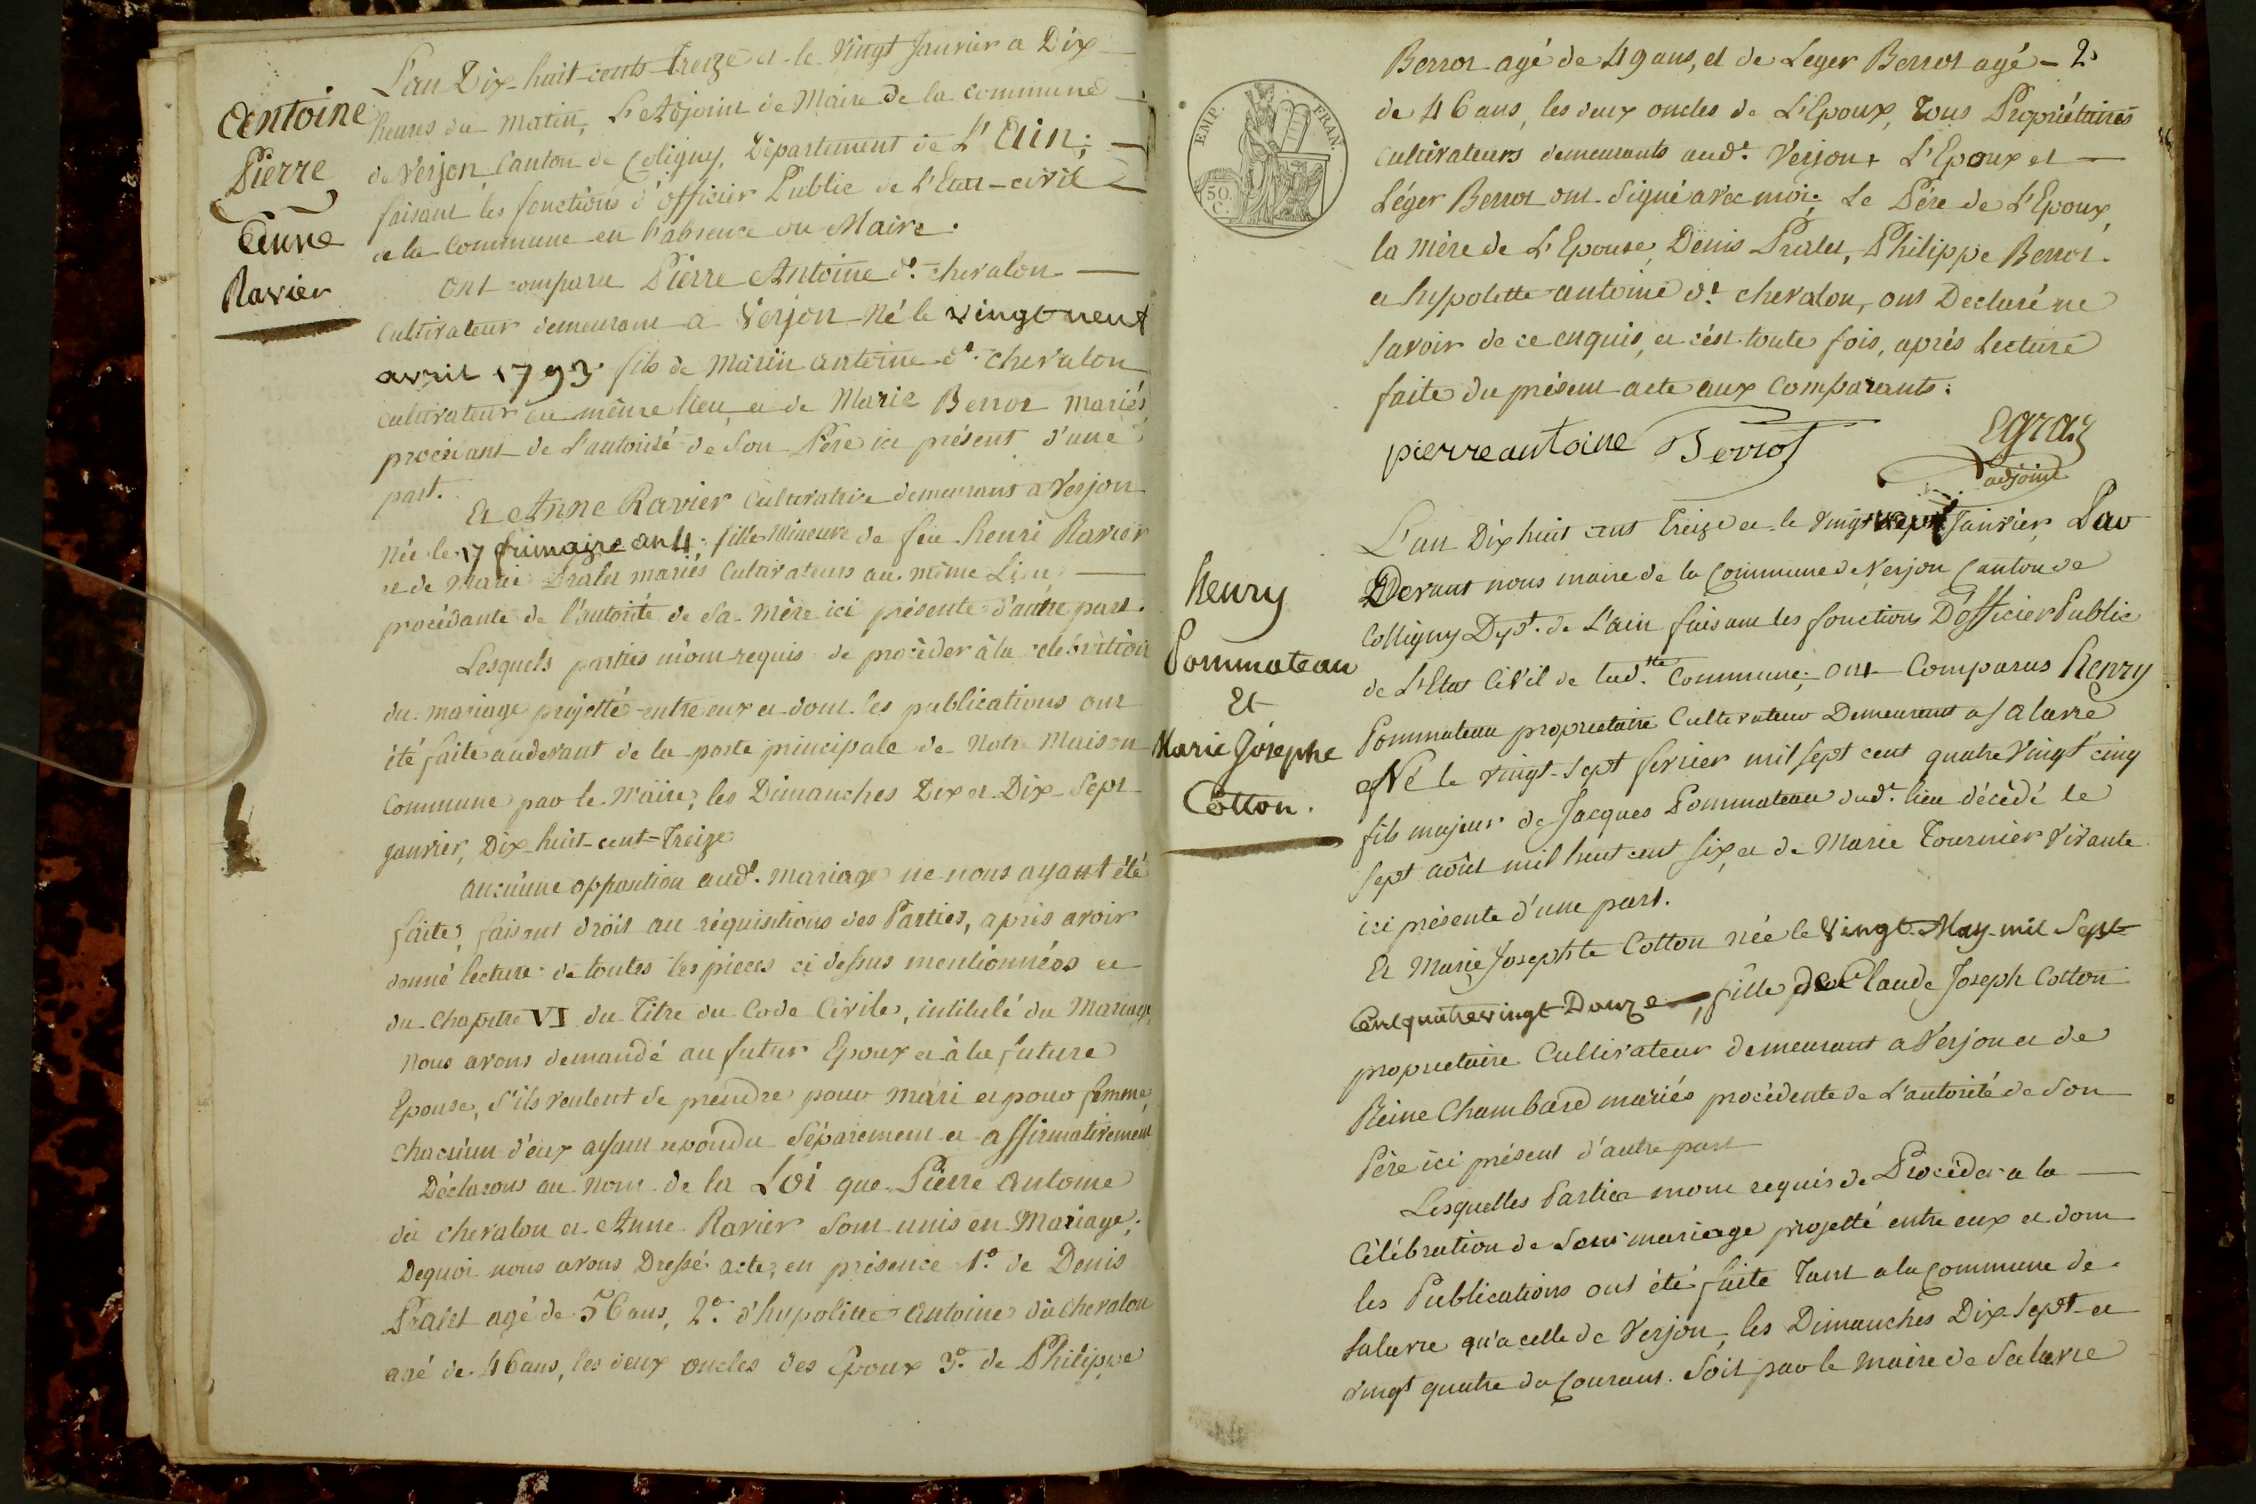 Antoine
Pierre
&
Anne
Ravier
L'an Dix-huit-cents-treize et le vingt Janvier a Dix
heures du matin, L'Adjoint de Maire de la commune
de Verjon, Canton de Coligny, Département de L'Ain;
faisant les fonctions d'officier Public de L'Etat-civil
de la Commune en l'absence du Maire.
Ont comparu Pierre Antoine dt. chevalon
Cultivateur demeurant a Verjon Né le vingt neuf
avril 1793. fils de Marin antoine dt. chevalon
cultivateur au même lieu et de Marie Berrot mariés
procédant de l'autorité de son Père ici présent d'une
part.
Et Anne Ravier Cultivatrice demeurant a Verjon
Née le 17 frimaire an 4; fille Mineure de feu henri Ravier
et de Marie Pralet mariés Cultivateurs au même Lieu
procédante de l'autorité de sa mère ici présente d'autre part.
Lesquels parties m'ont requis de procéder à la célébration
du mariage projetté entre eux et dont les publications ont
été faite audevant de la porte principale de Notre Maison
Commune par le Maire, les Dimanches Dix et Dix Sept
janvier, Dix huit-cent-Treize
aucunne opposition audt. mariage ne nous ayant été
faite, faisant droit au réquisitions des Parties, après avoir
donné lecture de toutes les pieces ci dessus mentionnées et
du chapitre VI du Titre du Code Civile, intitulé du Mariage,
Nous avons demandé au futur Epoux et à la future
Epouse, s'ils veulent se prendre pour mari et pour femme,
chacun d'eux ayant repondu séparement et affirmativement
Déclarons au Nom de la Loi que Pierre Antoine
dit chevalon et Anne Ravier sont unis en Mariage;
Dequoi nous avons Dressé acte, en présence 1.º de Denis
Pralet agé de 56 ans, 2.º d'hypolitte Antoine dit chevalon
agé de 46 ans, les deux oncles des Epoux 3.º de Philippe
EMP. FRAN.
50 C.
Berrot agé de 49 ans, et de Leger Berrot agé - 2
de 46 ans, les deux oncles de L'Epoux, Tous Propriétaires
cultivateurs demeurants audt. Verjon, L'Epoux et
Léger Berrot ont Signé avec moi; Le Père de L'Epoux,
la mère de L'Epouse, Denis Pralet, Philippe Berrot.
et hypolette antoine dt. chevalon, ont Declaré ne
savoir de ce enquis, et c'est toute fois, après Lecture
faite du présent acte aux Comparants.
pierre antoine Berrot Egraz
adjoint
henry
Pommateau
Et
Marie Josephe
Cotton.
L'an Dix huit cent Treize et le vingt sept Janvier, Par
Devant nous maire de la Commune de Verjon Canton de
Colligny Dept. de L'ain faisant les fonctions D'officier Public
de L'Etat Civil de lad.tte Commune; ont Comparus henry
Pommateau proprietaire Cultivateur Demeurant a Salavre
Né le vingt-Sept fevrier mil sept cent quatre vingt cinq
fils majeur de Jacques Pommateau dudt. lieu décédé le
sept août mil huit cent six, et de Marie Tournier vivante
ici présente d'une part.
Et Marie Josephte Cotton née le vingt May mil Sept
Cent quatre vingt Douze, fille de Claude Joseph Cotton
proprietaire Cultivateur demeurant a Verjon et de
Reine Chambard mariés procédente de L'autorité de son
Père ici présent d'autre part
Lesquelles Parties m'ont requis de Procéder a la
Célébration de leur mariage projetté entre eux et dont
les Publications ont été faite Tant a la Commune de
Salavre qu'a celle de Verjon, les Dimanches Dix Sept et
vingt quatre du Courant. Soit par le maire de Salavre